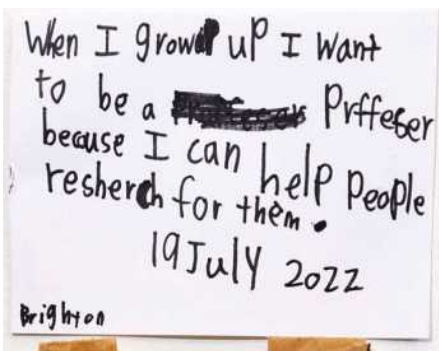 When I grow up I want
to be a Prffeser
becuse I can help people
reserch for them.
19 July 2022
Brighton